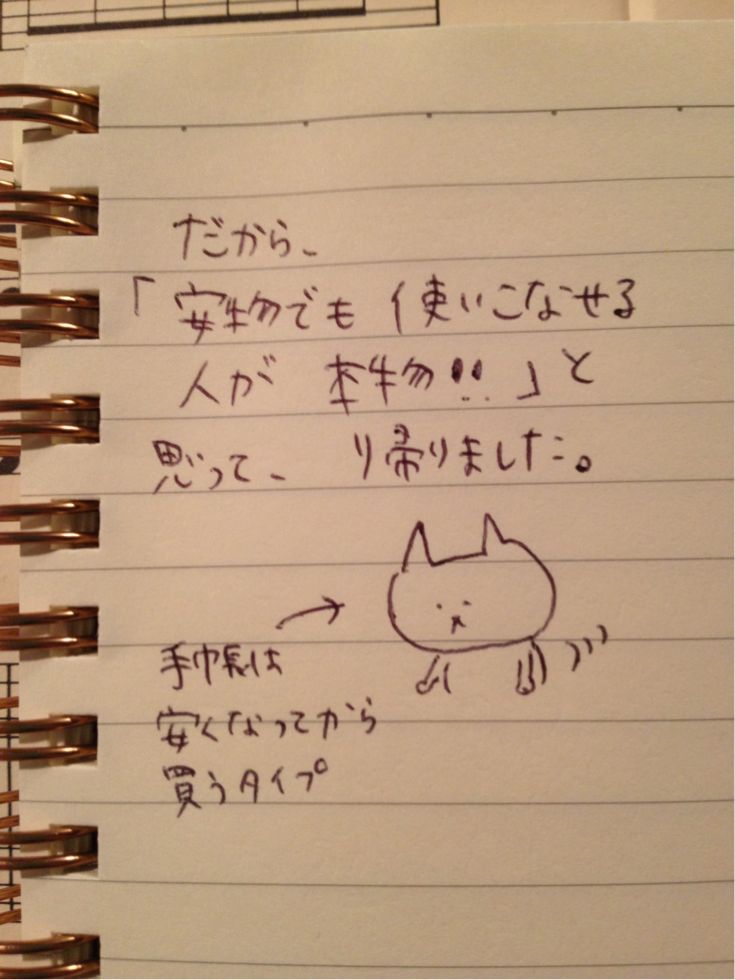 だから、
「安物でも 使いこなせる
人が 本物!!」と
思って、 帰りました。
手帳は
安くなってから
買うタイプ